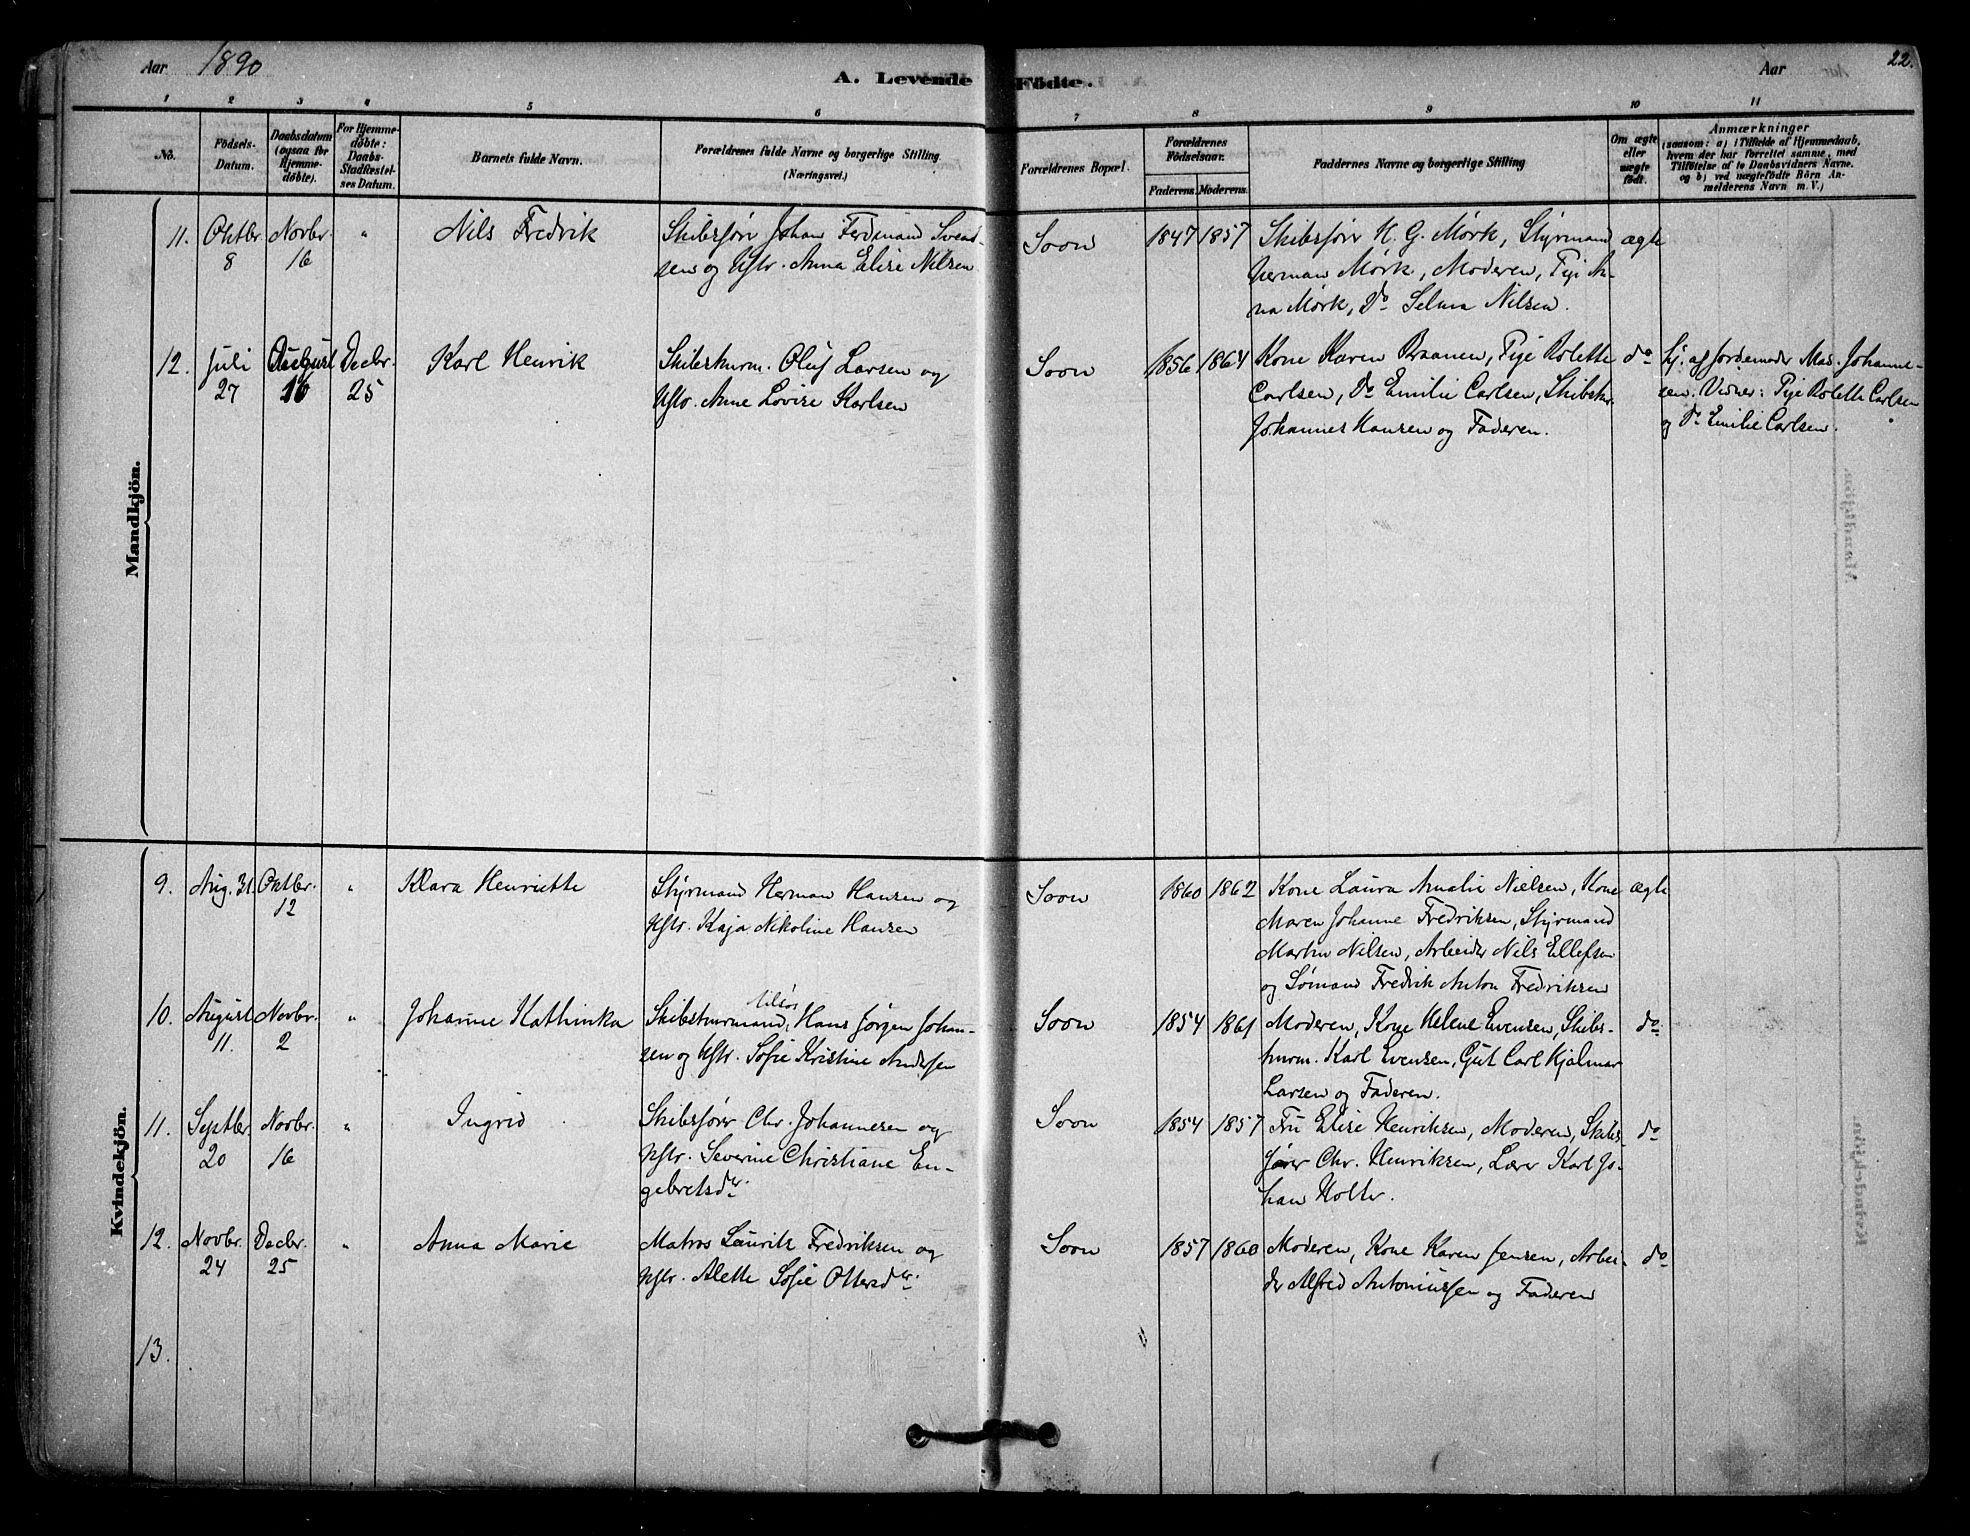 Aar 1890
A. Levende Födte.
Aar
22.
1 2 3 4 5 6 7 8 9 10 11
No.
Födsels-
Datum.
Daabsdatum
(ogsaa for
Hjemme-
döbte).
For Hjemme-
döbte:
Daabs-
Stadfestel-
ses Datum.
Barnets fulde Navn.
Forældrenes fulde Navne og borgerlige Stilling
(Næringsvei.)
Forældrenes Bopæl.
Forældrenes
Födselsaar.
Faderens. Moderens.
Faddernes Navne og borgerlige Stilling
Om ægte
eller
uægte
födt.
Anmærkninger
(saasom: a) i Tilfælde af Hjemmedaab,
hvem der har forrettet samme, med
Tilföielse af to Daabsvidners Navne,
og b) ved uægtefödte Börn An-
melderens Navn m. V.)
Mandkjön.
11. Oktbr 8 Novbr. 16 " Nils Fredrik
Skibsfører Johan Ferdinand Svend-
sen og Hstr. Anna Elise Nilsen
Soon 1847 1857
Skibsfører H. G. Mørk, Styrmand
Herman Mørk, Moderen, Pige An-
na Mørk, do Selma Nilsen.
ægte
12. Juli 27 August 10 Decbr. 25 Karl Henrik
Skibsturm. Oluf Larsen og
Hstr. Anne Lovise Karlsen
Soon 1856 1864
Kone Karen Braanen, Pige Rolette
Carlsen, do Emilie Carlsen, Skibstr.
Johannes Hansen og Faderen.
do
hj. af Jordemoder Mad. Johanne-
sen. Vidner: Pige Rolette Carlsen
og do Emilie Carlsen.
Kvindekjön.
9. Aug. 31 Oktbr. 12 " Klara Henriette
Styrmand Herman Hansen og
Hstr. Kaja Nikoline Hansen
Soon 1860 1862
Kone Laura Amalie Nielsen, Kone
Maren Johanne Fredriksen, Styrmand
Martin Nilsen, Arbeider Nils Ellefsen
og Sømand Fredrik Anton Fredriksen
ægte
10. August 11. Novbr. 2 " Johanne Kathinka
Skibsturmand, Hans Jørgen Johan-
sen og Hstr. Sofie Kristine Andersen
Soon 1854 1861
Moderen, Kone Helene Evensen, Skibs-
turm. Karl Evensen, Gut Carl Hjalmar
Larsen og Faderen.
do
11. Septbr. 20 Novbr. 16 " Ingrid
Skibsfører Chr. Johannesen og
Hstr. Severine Christiane En-
gebretsdtr.
Soon 1854 1857
Fru Elise Henriksen, Moderen, Skibs-
fører Chr. Henriksen, Lærer Karl Jo-
han Holter.
do
12. Novbr. 24 Decbr. 25 " Anna Marie
Matros Laurits Fredriksen og
Hstr. Alette Sofie Ottersdtr.
Soon 1857 1860
Moderen, Kone Karen Jensen, Arbei-
der Alfred Antoniussen og Faderen
do
13.